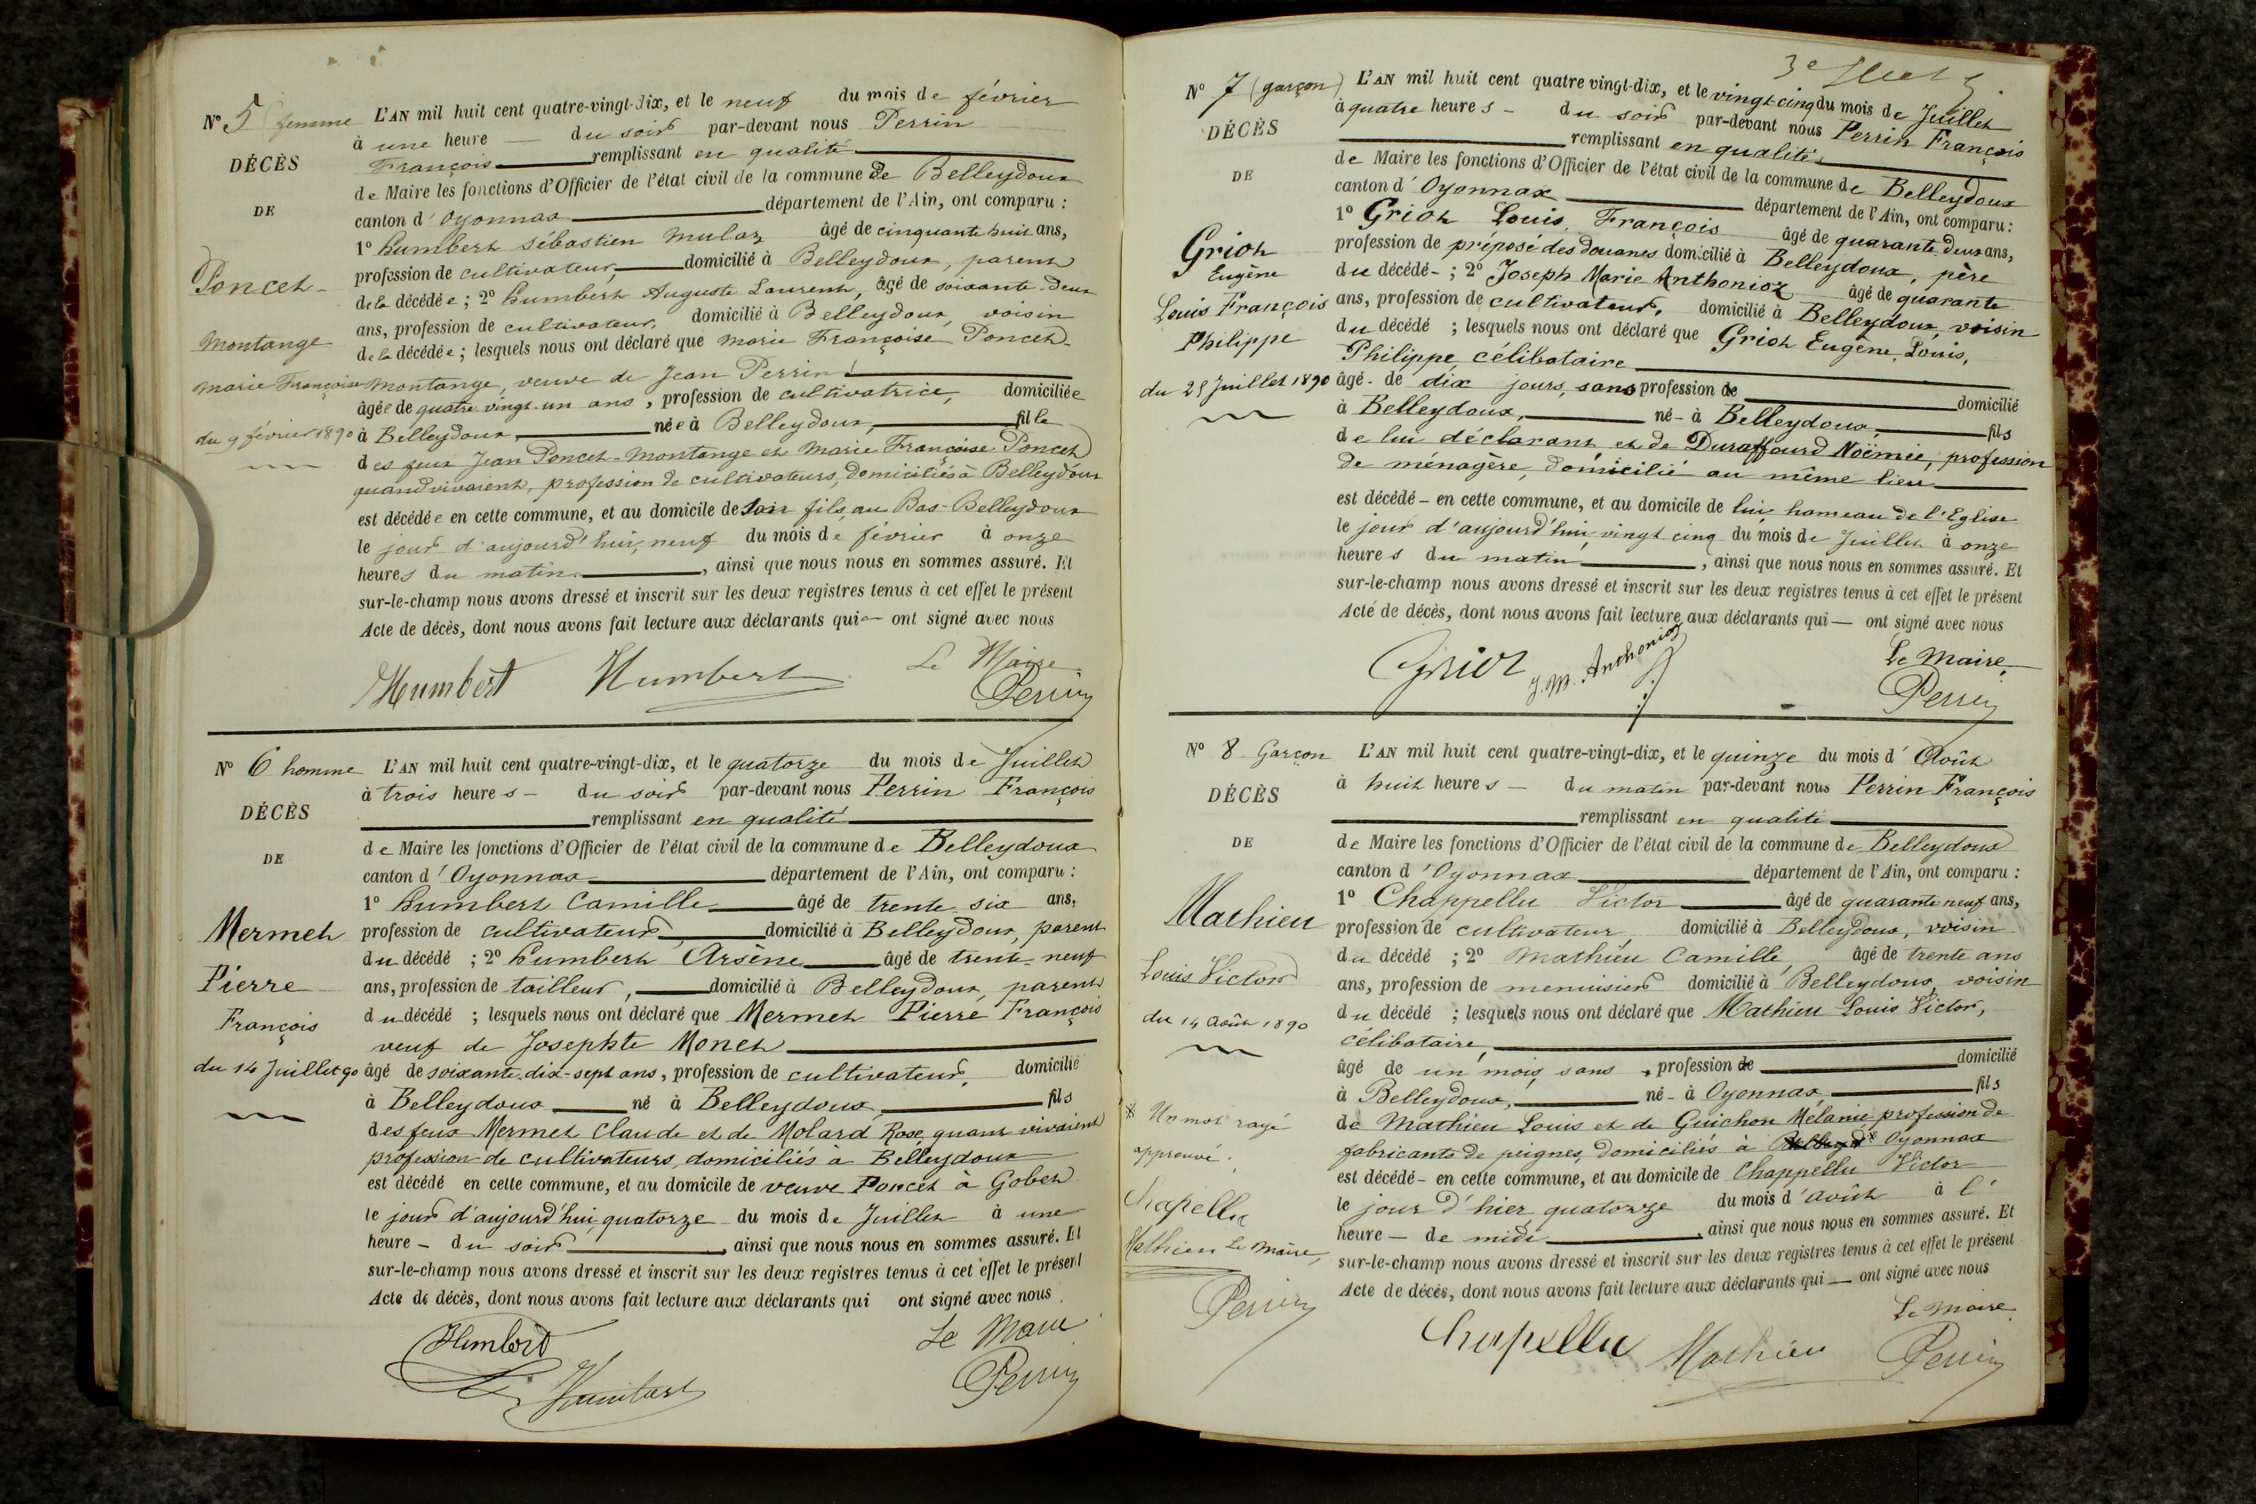 N° 5 (femme
DÉCÈS
DE
Poncet-
Montange
Marie Françoise
du 9 février 1890
L'AN mil huit cent quatre-vingt-dix, et le neuf du mois de février
à une heure — du soir par-devant nous Perrin
François remplissant en qualité
de Maire les fonctions d'Officier de l'état civil de la commune de Belleydoux
canton d'Oyonnax département de l'Ain, ont comparu :
1° humbert Sébastien Mulaz âgé de cinquante huit ans,
profession de cultivateur, domicilié à Belleydoux, parent
de la décédée ; 2° humbert Auguste Laurent, âgé de soixante-deux
ans, profession de cultivateur, domicilié à Belleydoux, voisin
de la décédée ; lesquels nous ont déclaré que Marie Françoise Poncet-
Montange, veuve de Jean Perrin
âgée de quatre vingt-un ans, profession de cultivatrice, domiciliée
à Belleydoux, née à Belleydoux, fille
des feux Jean Poncet-Montange et Marie Françoise Poncet
quand vivaient, profession de cultivateurs, domiciliés à Belleydoux
est décédée en cette commune, et au domicile de son fils, au Bas-Belleydoux
le jour d'aujourd'hui, neuf du mois de février à onze
heures du matin, ainsi que nous nous en sommes assuré. Et
sur-le-champ nous avons dressé et inscrit sur les deux registres tenus à cet effet le présent
Acte de décès, dont nous avons fait lecture aux déclarants qui — ont signé avec nous
Humbert Humbert Le Maire
Perrin
N° 6 homme
DÉCÈS
DE
Mermet
Pierre
François
du 14 Juillet 90
L'AN mil huit cent quatre-vingt-dix, et le quatorze du mois de Juillet
à trois heures — du soir par-devant nous Perrin François
remplissant en qualité
de Maire les fonctions d'Officier de l'état civil de la commune de Belleydoux
canton d'Oyonnax département de l'Ain, ont comparu :
1° humbert Camille âgé de trente six ans,
profession de cultivateur, domicilié à Belleydoux, parent
du décédé ; 2° humbert Arsène âgé de trente-neuf
ans, profession de tailleur, domicilié à Belleydoux, parent
du décédé ; lesquels nous ont déclaré que Mermet Pierre François
veuf de Josephte Monet
âgé de soixante-dix-sept ans, profession de cultivateur, domicilié
à Belleydoux né à Belleydoux, fils
des feux Mermet Claude et de Molard Rose quant vivaient
profession de cultivateurs, domiciliés a Belleydoux
est décédé en cette commune, et au domicile de veuve Poncet à Gobet
le jour d'aujourd'hui, quatorze du mois de Juillet à une
heure — du soir, ainsi que nous nous en sommes assuré. Et
sur-le-champ nous avons dressé et inscrit sur les deux registres tenus à cet effet le présent
Acte de décès, dont nous avons fait lecture aux déclarants qui ont signé avec nous.
Humbert Le Maire
Humbert Perrin
N° 7 (garçon)
DÉCÈS
DE
Griot
Eugène
Louis François
Philippe
du 25 Juillet 1890
L'AN mil huit cent quatre vingt-dix, et le vingt-cinq du mois de Juillet
à quatre heures — du soir par-devant nous Perrin François
remplissant en qualité
de Maire les fonctions d'Officier de l'état civil de la commune de Belleydoux
canton d'Oyonnax département de l'Ain, ont comparu :
1° Griot Louis, François âgé de quarante-deux ans,
profession de préposé des Douanes domicilié à Belleydoux, père
du décédé - ; 2° Joseph Marie Anthonioz âgé de quarante
ans, profession de cultivateur, domicilié à Belleydoux, voisin
du décédé ; lesquels nous ont déclaré que Griot Eugène, Louis,
Philippe, célibataire
âgé - de dix jours, sans profession de domicilié
à Belleydoux, né - à Belleydoux, fils
de lui déclarant et de Duraffourd Noëmie, profession
de ménagère, domicilié au même lieu
est décédé - en cette commune, et au domicile de lui hameau de l'Eglise
le jour d'aujourd'hui, vingt cinq du mois de Juillet à onze
heures du matin, ainsi que nous nous en sommes assuré. Et
sur-le-champ nous avons dressé et inscrit sur les deux registres tenus à cet effet le présent
Acte de décès, dont nous avons fait lecture aux déclarants qui — ont signé avec nous
Griot J. M. Anthonioz Le Maire,
Perrin
N° 8 Garçon
DÉCÈS
DE
Mathieu
Louis Victor
du 14 Août 1890
* Un mot rayé
approuvé.
Chapellu
Mathieu Le Maire,
Perrin
L'AN mil huit cent quatre-vingt-dix, et le quinze du mois d'Août
à huit heures — du matin par-devant nous Perrin François
remplissant en qualité
de Maire les fonctions d'Officier de l'état civil de la commune de Belleydoux
canton d'Oyonnax département de l'Ain, ont comparu :
1° Chappellu Victor âgé de quarante neuf ans,
profession de cultivateur, domicilié à Belleydoux, voisin
du décédé ; 2° Mathieu Camille, âgé de trente ans
ans, profession de menuisier domicilié à Belleydoux, voisin
du décédé ; lesquels nous ont déclaré que Mathieu Louis Victor,
célibataire,
âgé de un mois, sans, profession de domicilié
à Belleydoux, né - à Oyonnax, fils
de Mathieu Louis et de Guichon Mélanie profession de
fabricants de peignes, domiciliés à Belleyd* Oyonnax
est décédé - en cette commune, et au domicile de Chappellu Victor
le jour d'hier, quatorze du mois d'août à l'
heure — de midi, ainsi que nous nous en sommes assuré. Et
sur-le-champ nous avons dressé et inscrit sur les deux registres tenus à cet effet le présent
Acte de décès, dont nous avons fait lecture aux déclarants qui — ont signé avec nous
Le Maire.
Chapellu Mathieu Perrin